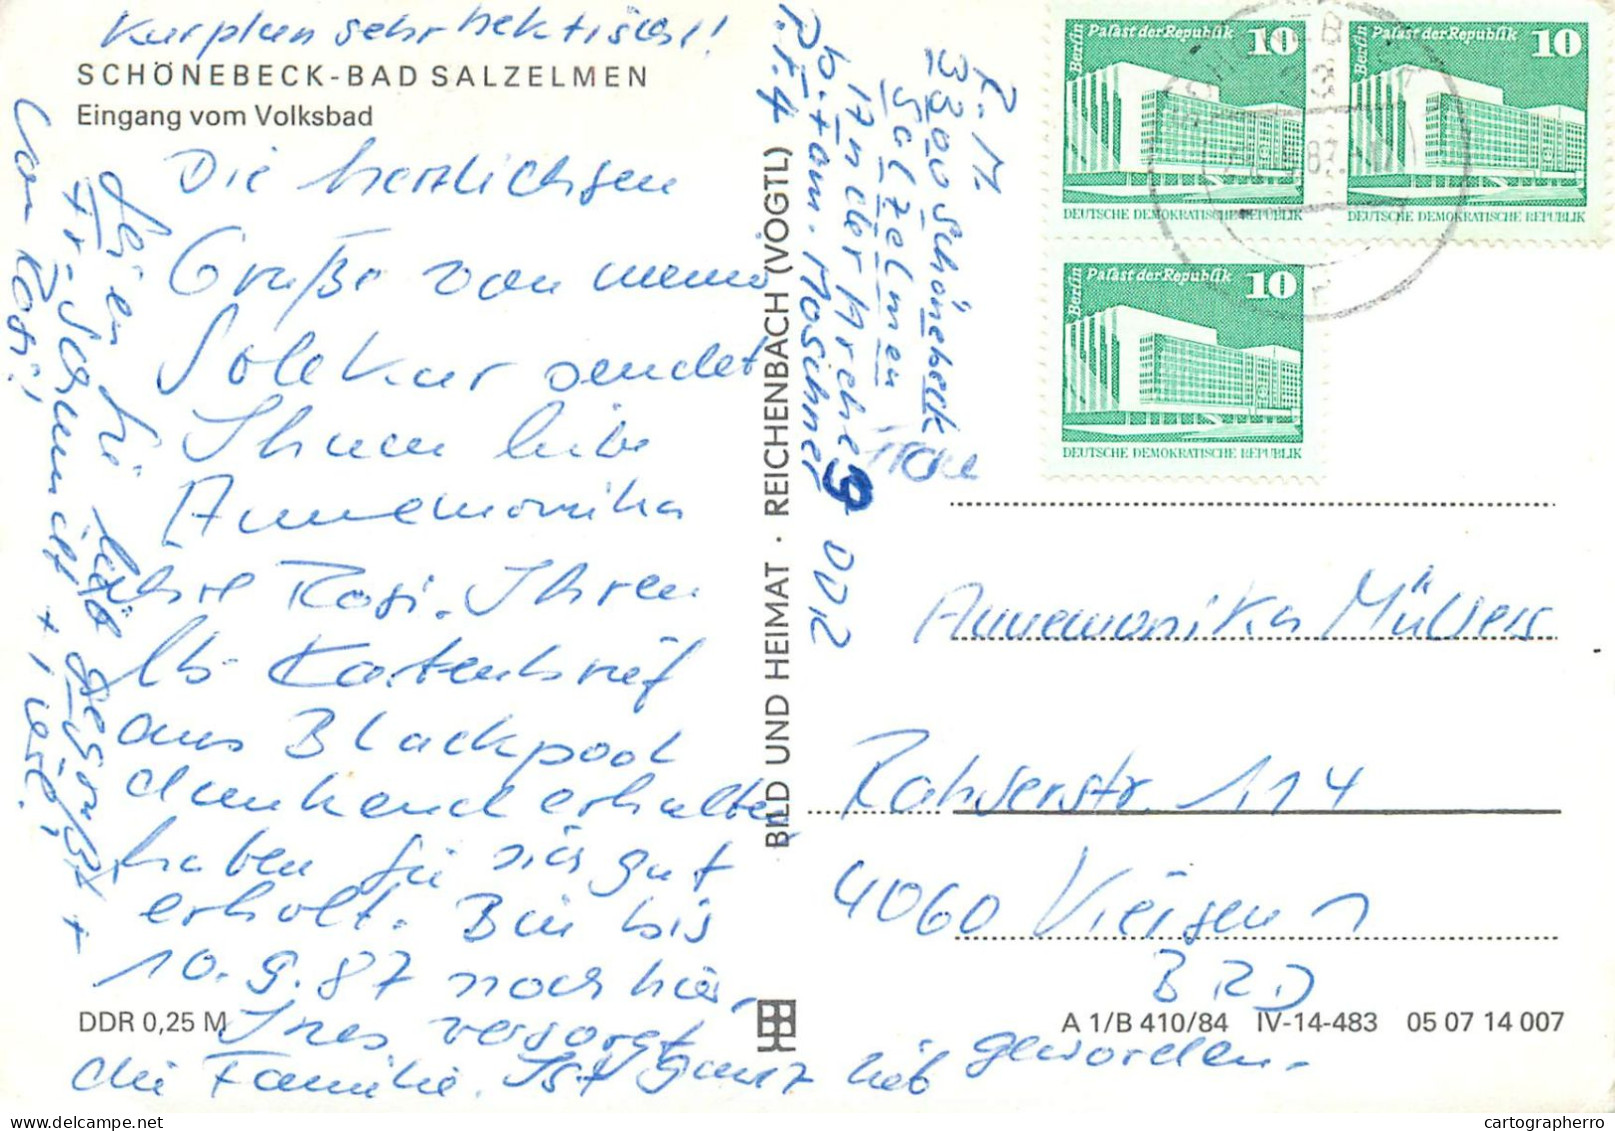 Kurplan sehr hektisch!
SCHÖNEBECK-BAD SALZELMEN
Eingang vom Volksbad
Die herzlichsten
Grüße von meiner
Solekur sendet
Ihnen liebe
Annemonika
Ihre Rosi. Ihren
lb. Kartenbrief
aus Blackpool
dankend erhalten
haben Sie sich gut
erholt. Bin bis
10.9.87 noch hier,
Ines versorgt
die Familie. Ist ganz lieb geworden.
Seien Sie lieb gegrüßt +
Fr. Schmidt +
von Rosi!
BILD UND HEIMAT · REICHENBACH (VOGTL)
DDR 0,25 M
A 1/B 410/84 IV-14-483 05 07 14 007
R. M.
3300 Schönebeck
Salzelmen
An der Kirche 9
b. Fam. Moschner
DDR
Berlin Palast der Republik 10
DEUTSCHE DEMOKRATISCHE REPUBLIK
Berlin Palast der Republik 10
DEUTSCHE DEMOKRATISCHE REPUBLIK
Berlin Palast der Republik 10
DEUTSCHE DEMOKRATISCHE REPUBLIK
Annemonika Müllers
Rahserstr. 114
4060 Viersen 1
BRD
cartographerro